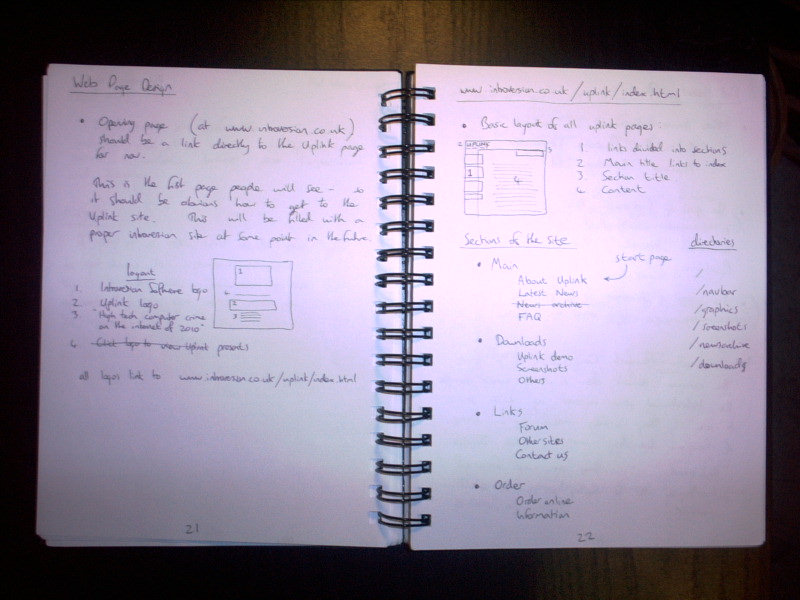 Web Page Design
• Opening page (at www.introversion.co.uk)
should be a link directly to the Uplink page
for now.
This is the first page people will see - so
it should be obvious how to get to the
Uplink site. This will be filled with a
proper introversion site at some point in the future.
layout
1. Introversion Software logo
2. Uplink logo
3. "High tech computer crime
on the internet of 2010"
4. Click logo to view Uplink presents
1
4
2
3
all logos link to www.introversion.co.uk/uplink/index.html
21
www.introversion.co.uk/uplink/index.html
• Basic layout of all uplink pages:
2 UPLINK
3
1
4
1 links divided into sections
2 Main title links to index
3 Section title
4 Content
Sections of the site
• Main
start page
About Uplink
Latest News
News archive
FAQ
• Downloads
Uplink demo
Screenshots
Others
• Links
Forum
Other sites
Contact us
• Order
Order online
Information
directories
/
/navbar
/graphics
/screenshots
/newsarchive
/downloads
22